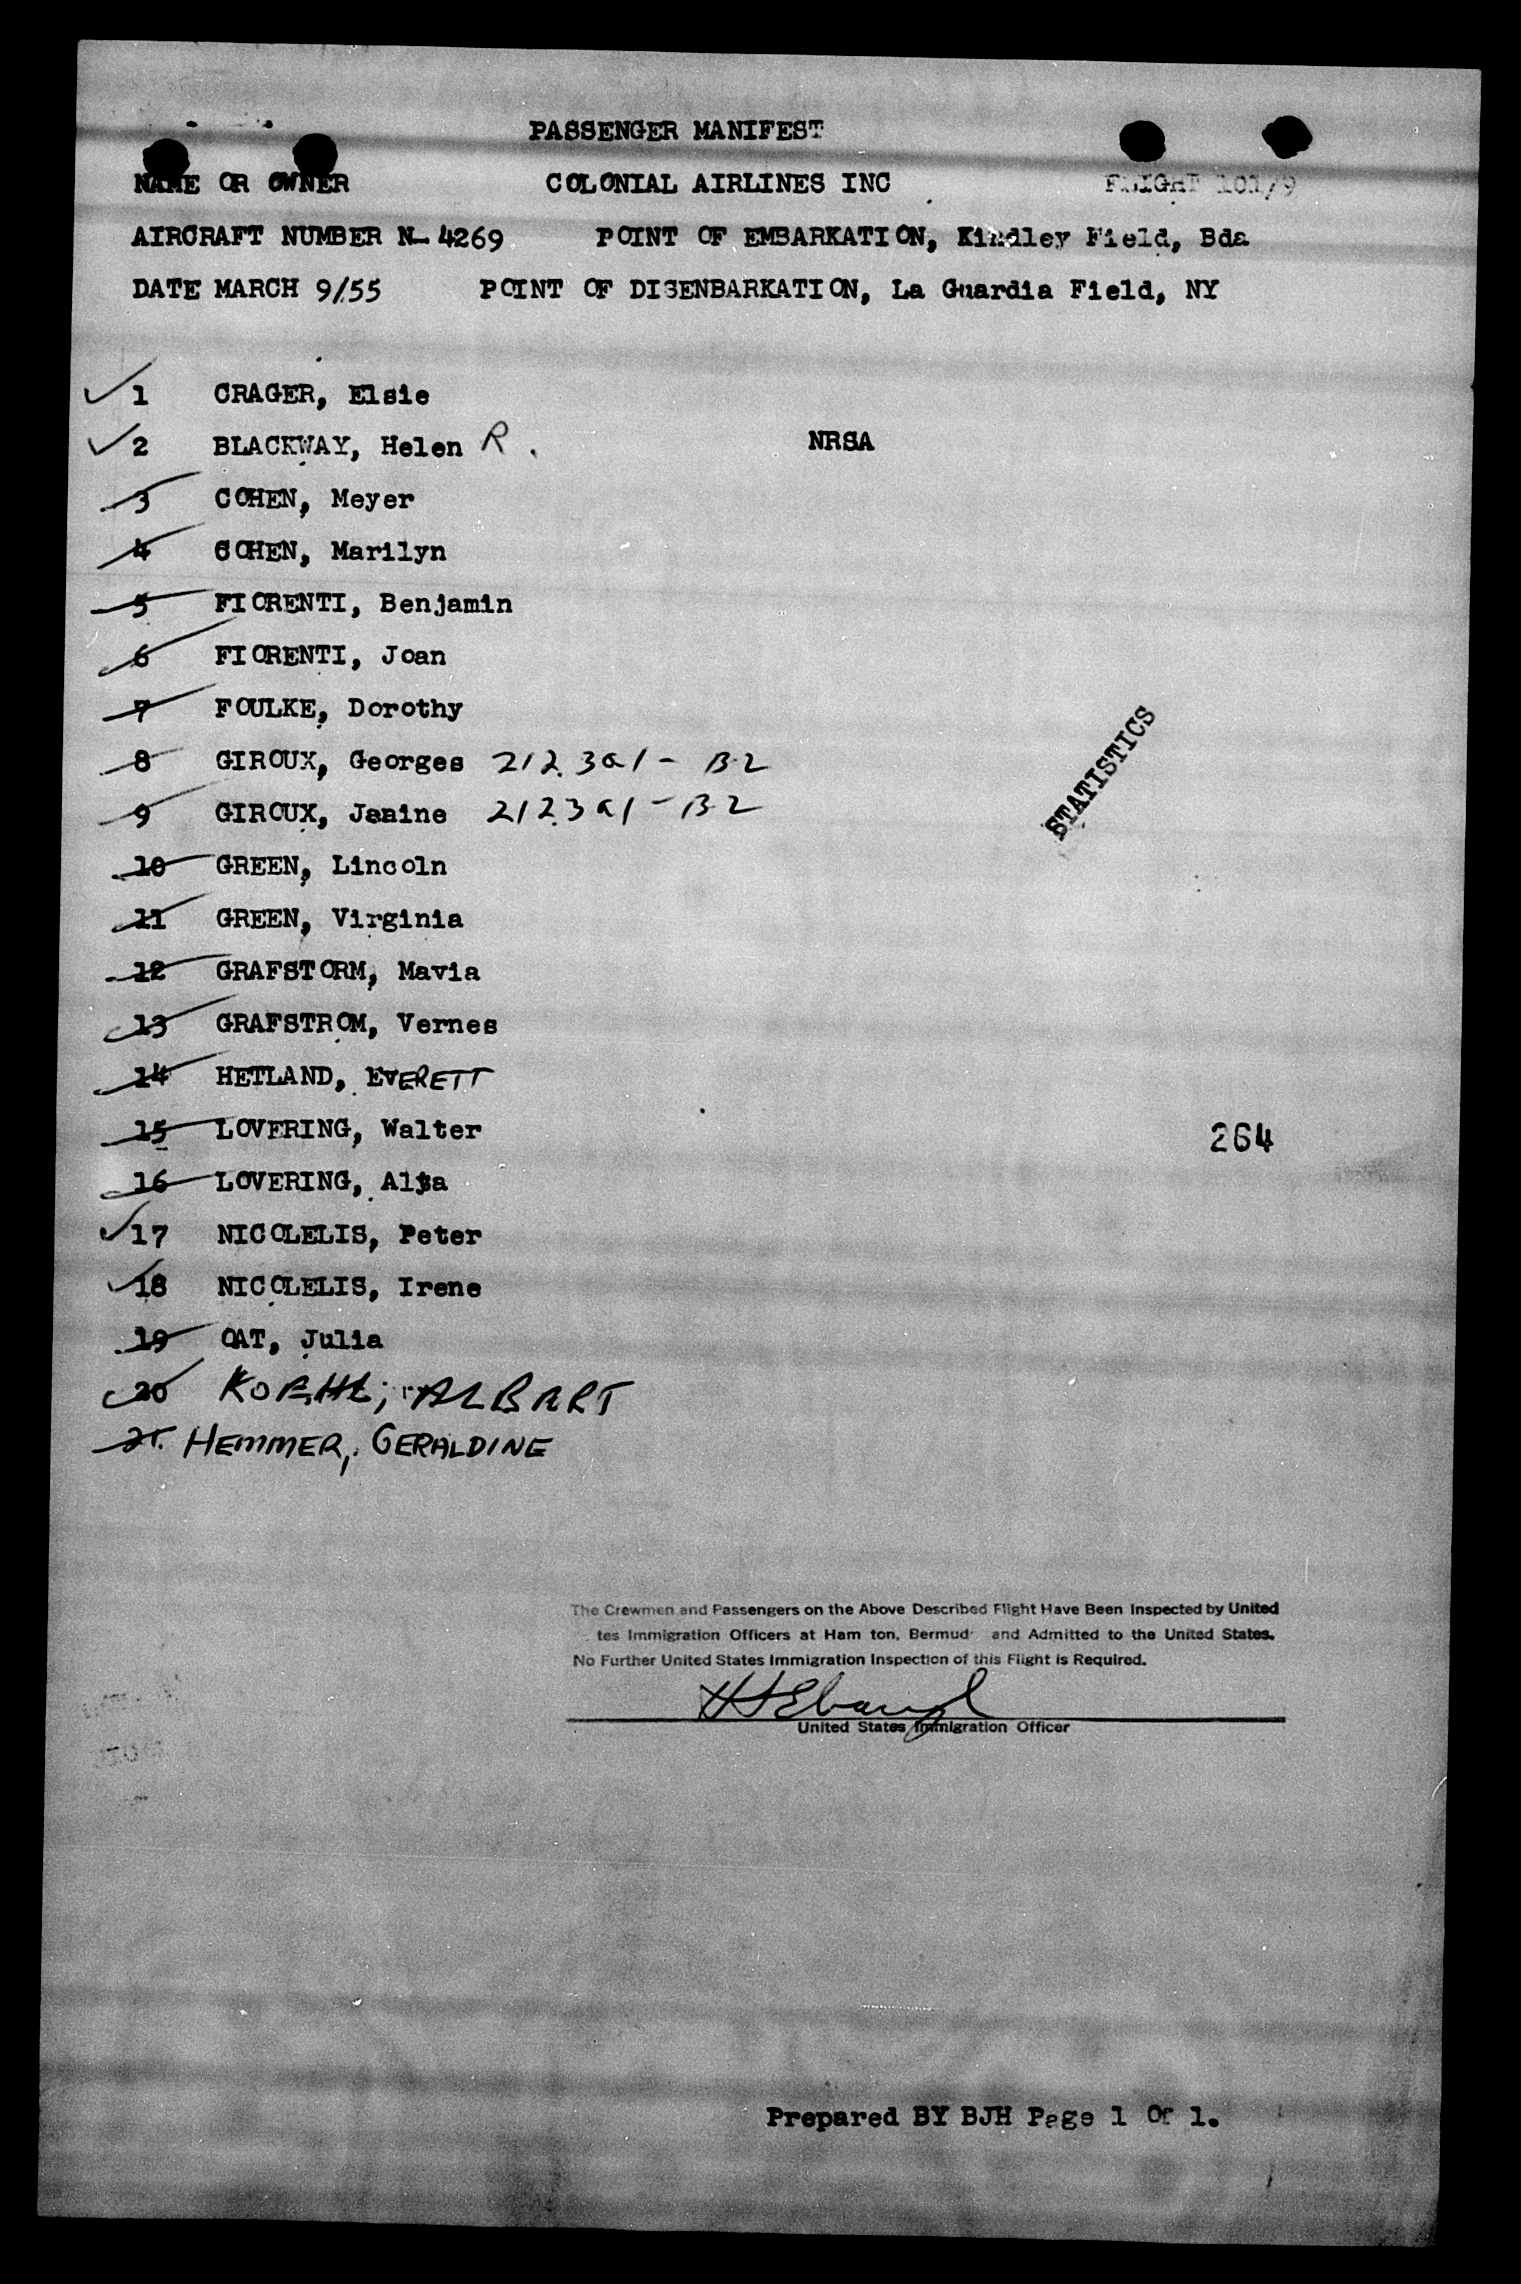 PASSENGER MANIFEST
NAME OR OWNER COLONIAL AIRLINES INC FLIGHT 101/9
AIRCRAFT NUMBER N-4269 POINT OF EMBARKATION, Kindley Field, Bda
DATE MARCH 9/55 POINT OF DISENBARKATION, La Guardia Field, NY
1 CRAGER, Elsie
2 BLACKWAY, Helen R. NRSA
3 COHEN, Meyer
4 COHEN, Marilyn
5 FIORENTI, Benjamin
6 FIORENTI, Joan
7 FOULKE, Dorothy
8 GIROUX, Georges 212.3a1 - B2
9 GIROUX, Janine 212.3a1 - B2
STATISTICS
10 GREEN, Lincoln
11 GREEN, Virginia
12 GRAFSTORM, Mavia
13 GRAFSTROM, Vernes
14 HETLAND, EVERETT
15 LOVERING, Walter
264
16 LOVERING,
17 NICOLELIS, Peter
18 NICOLELIS, Irene
19 OAT, Julia
20 KOEHL, ALBERT
21. HEMMER, GERALDINE
The Crewmen and Passengers on the Above Described Flight Have Been Inspected by United
tes Immigration Officers at Ham ton, Bermud and Admitted to the United States.
No Further United States Immigration Inspection of this Flight is Required.
United States Immigration Officer
Prepared BY BJH Page 1 Of 1.